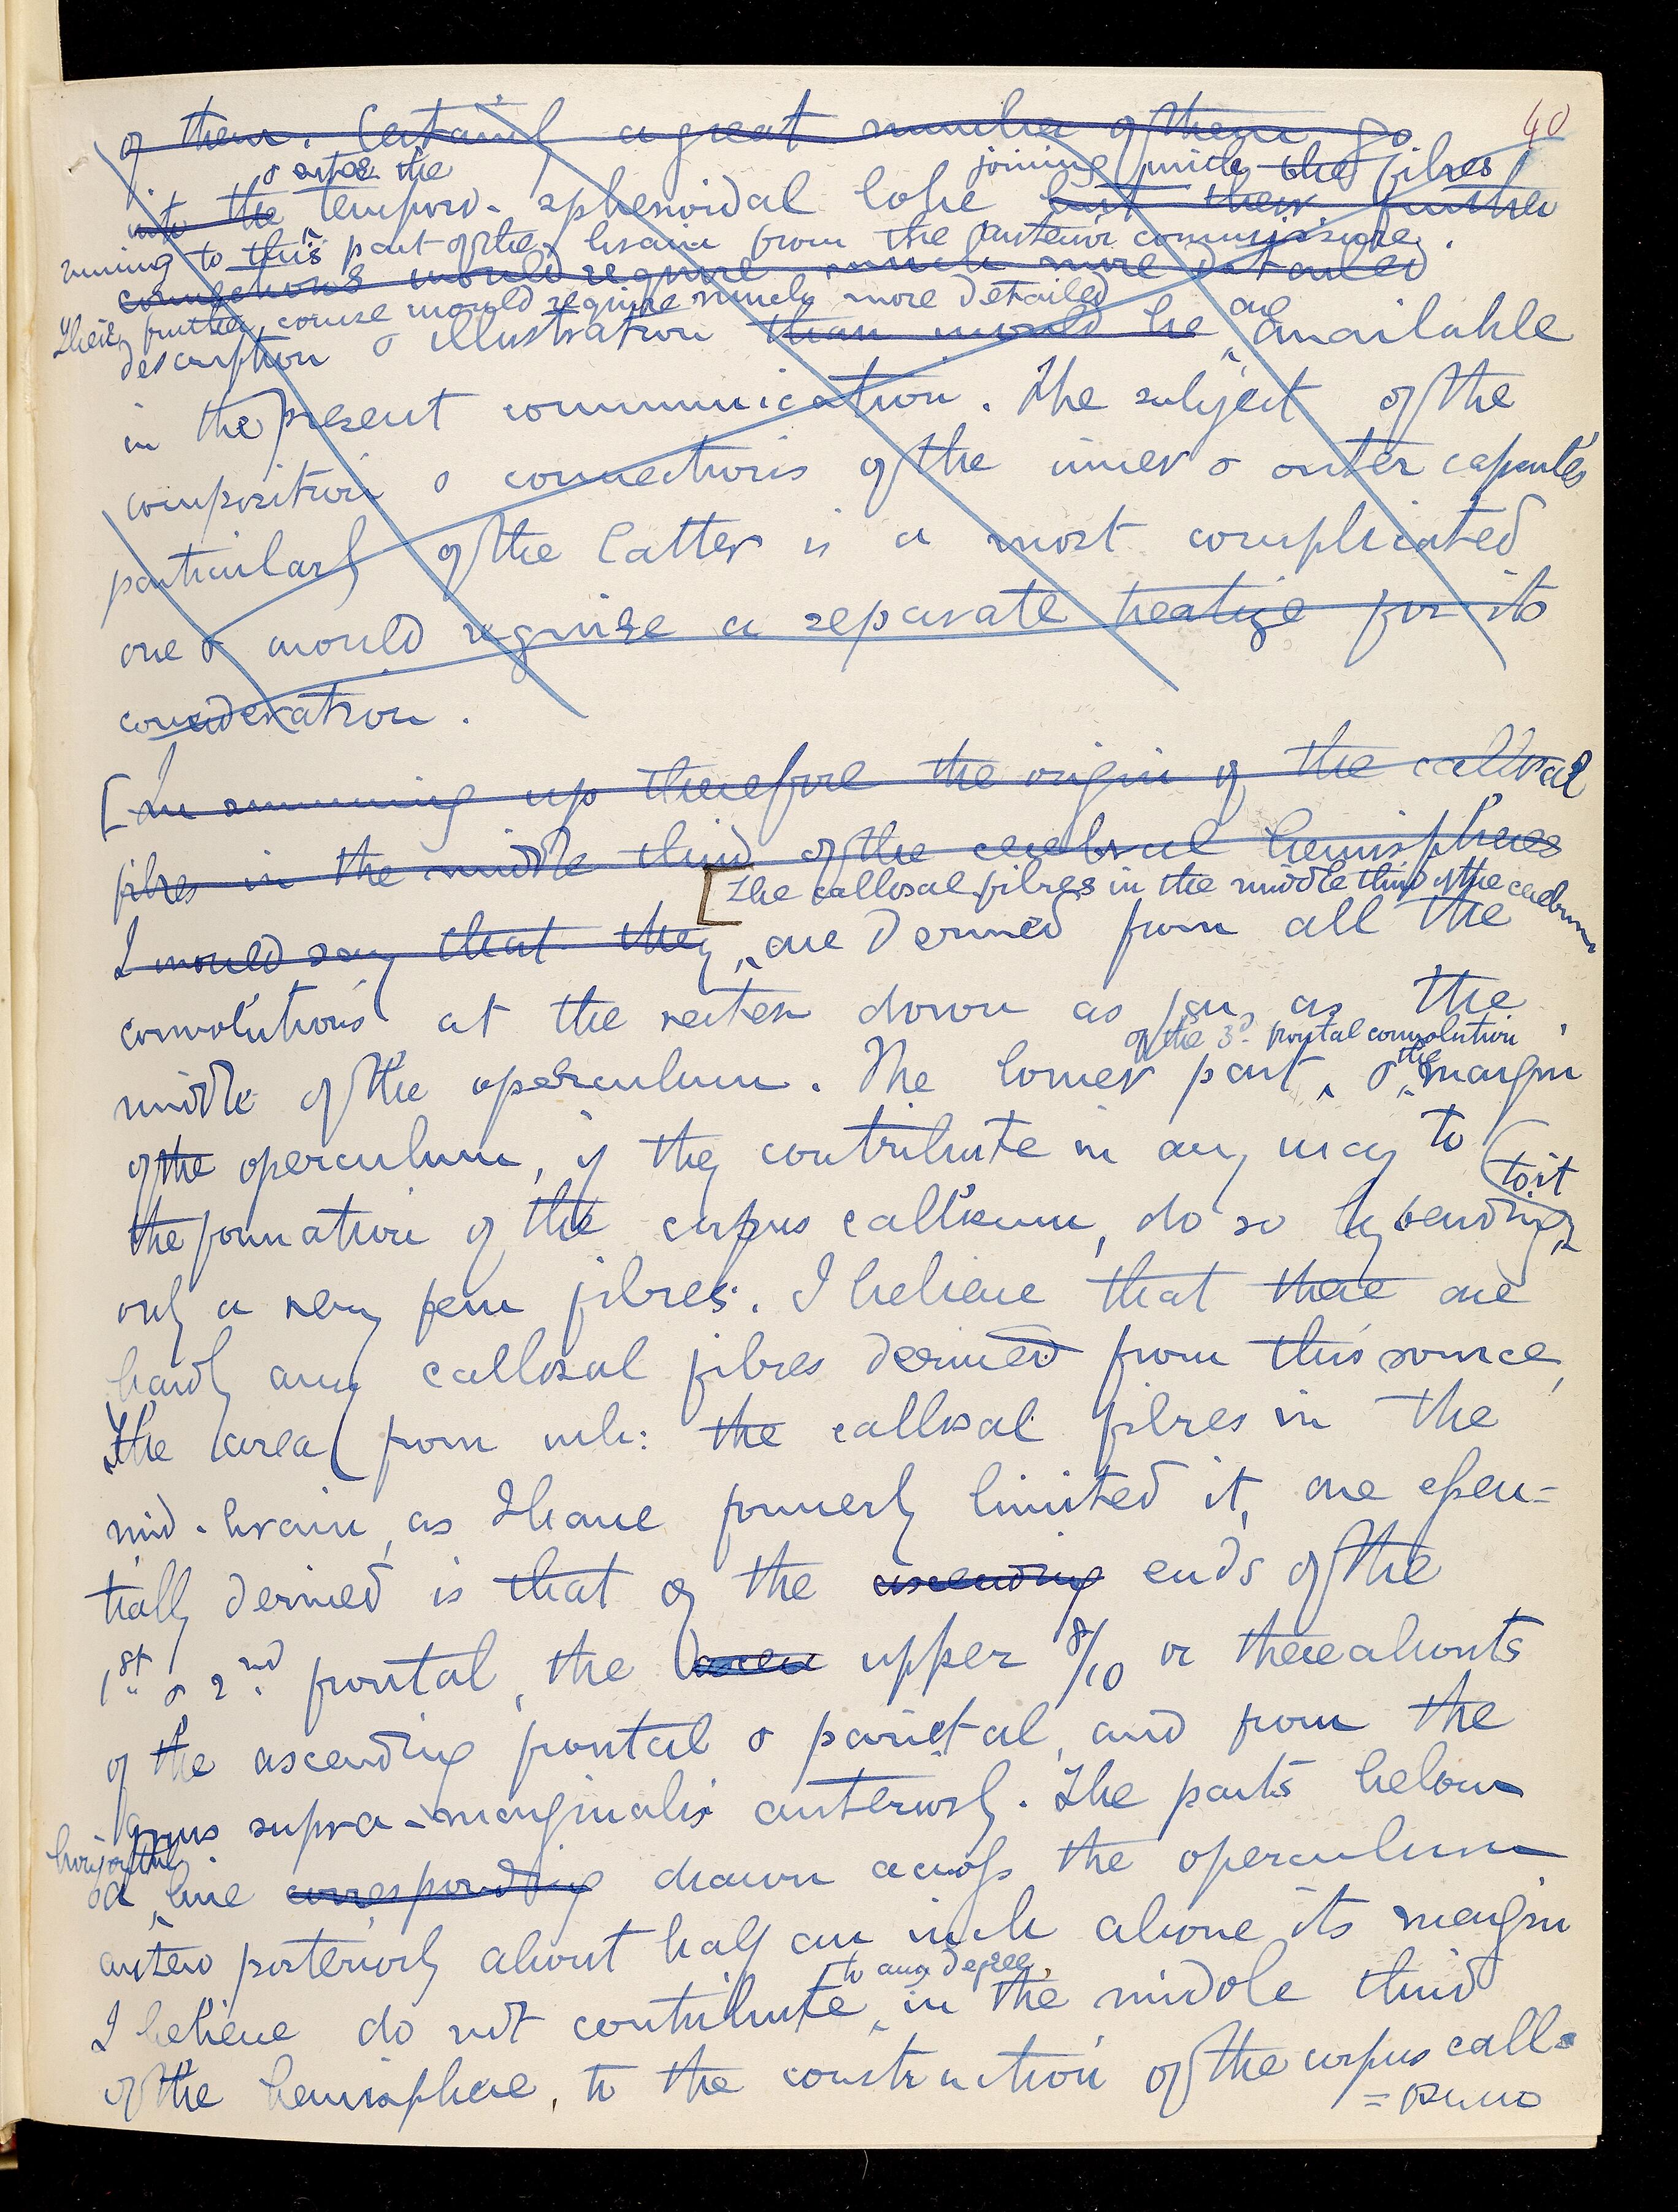 40
of them. Certainly a great number of them go
& enter the joining with the fibres
into the temporo-sphenoidal lobe but their further
running to this part of the brain from the anterior commissure.
connections would require much more detailed
Their further course would require much more detailed
description & illustration than would be are available
in the present communication. The subject of the
composition & connections of the inner & outer capsules
particularly of the latter is a most complicated
one & would require a separate treatise for its
consideration.
[In summing up therefore the origin of the callosal
fibres in the middle third of the cerebral hemispheres
[The callosal fibres in the middle third of the cerebrum
I would say that they are derived from all the
convolutions at the vertex down as far as the
of the 3d frontal convolution
middle of the operculum. The lower part, & the margin
of the operculum, if they contribute in any way to
to it
the formation of the corpus callosum, do so by sending
only a very few fibres. I believe that there are
hardly any callosal fibres derived from this source,
The area from wh: the callosal fibres in the
mid-brain, as I have formerly limited it, are essen=
tially derived is that of the ascending ends of the
1st & 2nd frontal, the area upper 8/10 or thereabouts
of the ascending frontal & parietal, and from the
gyrus supra-marginalis anteriorly. The parts below
horizontal
a line corresponding drawn across the operculum
antero posteriorly about half an inch above its margin
to any degree,
I believe do not contribute, in the middle third
of the hemisphere, to the construction of the corpus call=
=osum